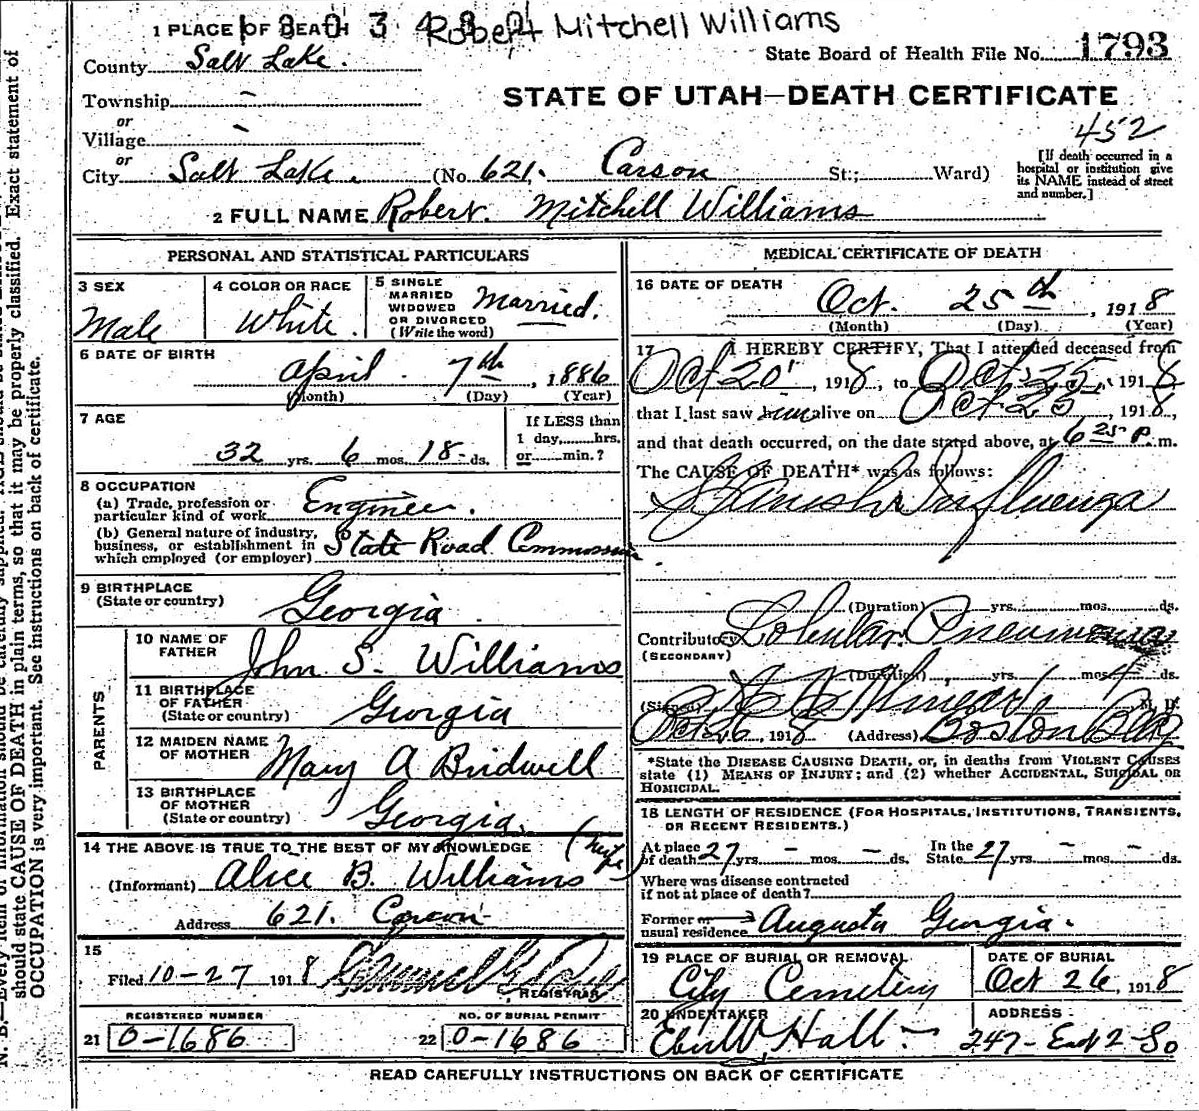 1 PLACE OF DEATH Robert Mitchell Williams
State Board of Health File No. 1793
County Salt Lake.
STATE OF UTAH—DEATH CERTIFICATE
Township –
or
Village –
452
or
City Salt Lake. (No. 621. Carson St.; Ward)
[If death occurred in a hospital or institution give its NAME instead of street and number.]
2 FULL NAME Robert. Mitchell Williams
PERSONAL AND STATISTICAL PARTICULARS
3 SEX
Male
4 COLOR OR RACE
White.
5 SINGLE
MARRIED
WIDOWED
OR DIVORCED
(Write the word)
Married.
6 DATE OF BIRTH
April 7th, 1886
(Month) (Day) (Year)
7 AGE
32 yrs. 6 mos. 18 ds.
If LESS than
1 day, hrs.
or min.?
8 OCCUPATION
(a) Trade, profession or
particular kind of work Engineer.
(b) General nature of industry,
business, or establishment in
which employed (or employer) State Road Commission
9 BIRTHPLACE
(State or country)
Georgia
PARENTS
10 NAME OF
FATHER
John S. Williams
11 BIRTHPLACE
OF FATHER
(State or country)
Georgia
12 MAIDEN NAME
OF MOTHER
Mary A Bridwell
13 BIRTHPLACE
OF MOTHER
(State or country)
Georgia.
14 THE ABOVE IS TRUE TO THE BEST OF MY KNOWLEDGE
(Informant) Alice B. Williams (wife)
Address 621. Carson
15
Filed 10-27 1918
REGISTRAR
REGISTERED NUMBER
21 0-1686
NO. OF BURIAL PERMIT
22 0-1686
MEDICAL CERTIFICATE OF DEATH
16 DATE OF DEATH
Oct. 25th, 1918
(Month) (Day) (Year)
17 I HEREBY CERTIFY, That I attended deceased from
Oct 20, 1918, to Oct. 25, 1918
that I last saw him alive on Oct 25, 1918,
and that death occurred, on the date stated above, at 6 25 P. m.
The CAUSE OF DEATH* was as follows:
Spanish Influenza
(Duration) yrs. mos. ds.
Contributory Lobular Pneumonia
(SECONDARY)
(Duration) yrs. mos. 4 ds.
(Signed) M. D.
Oct 26, 1918 (Address) Boston Bldg
*State the DISEASE CAUSING DEATH, or, in deaths from VIOLENT CAUSES
state (1) MEANS OF INJURY; and (2) whether ACCIDENTAL, SUICIDAL OR
HOMICIDAL.
18 LENGTH OF RESIDENCE (FOR HOSPITALS, INSTITUTIONS, TRANSIENTS,
OR RECENT RESIDENTS.)
At place
of death 27 yrs. – mos. – ds. In the
State 27 yrs. – mos. – ds.
Where was disease contracted
if not at place of death?
Former or
usual residence Augusta Georgia.
19 PLACE OF BURIAL OR REMOVAL
City Cemetery
DATE OF BURIAL
Oct 26, 1918
20 UNDERTAKER
Eber W. Hall
ADDRESS
247- East 2-So
READ CAREFULLY INSTRUCTIONS ON BACK OF CERTIFICATE
should state CAUSE OF DEATH in plain terms, so that it may be properly classified. Exact statement of
OCCUPATION is very important. See instructions on back of certificate.